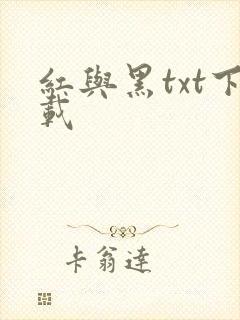 紅與黑txt下
載
卡翁達